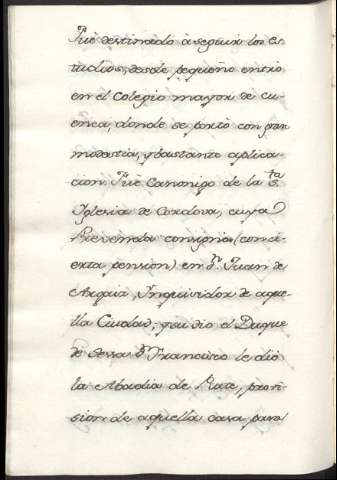 Fue destinado à seguir los es
tudios, desde pequeño entró
en el Colegio mayor de Cu-
enca, donde se portò con gran
modestia, y bastante aplica-
cion. Fue Canonigo de la S.ta
Iglesia de Cordova, cuya
Prevenda consignó (con ci-
erta pension) en D.n Juan de
Argaiz, Inquisidor de aque-
lla Ciudad; y su tio el Duque
de Sessa D.n Francisco le dió
la Abadia de Rute, provi-
sion de aquella casa para